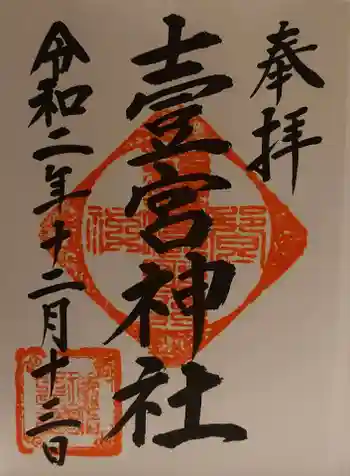 奉拝
壹宮神社
令和二年十二月十三日